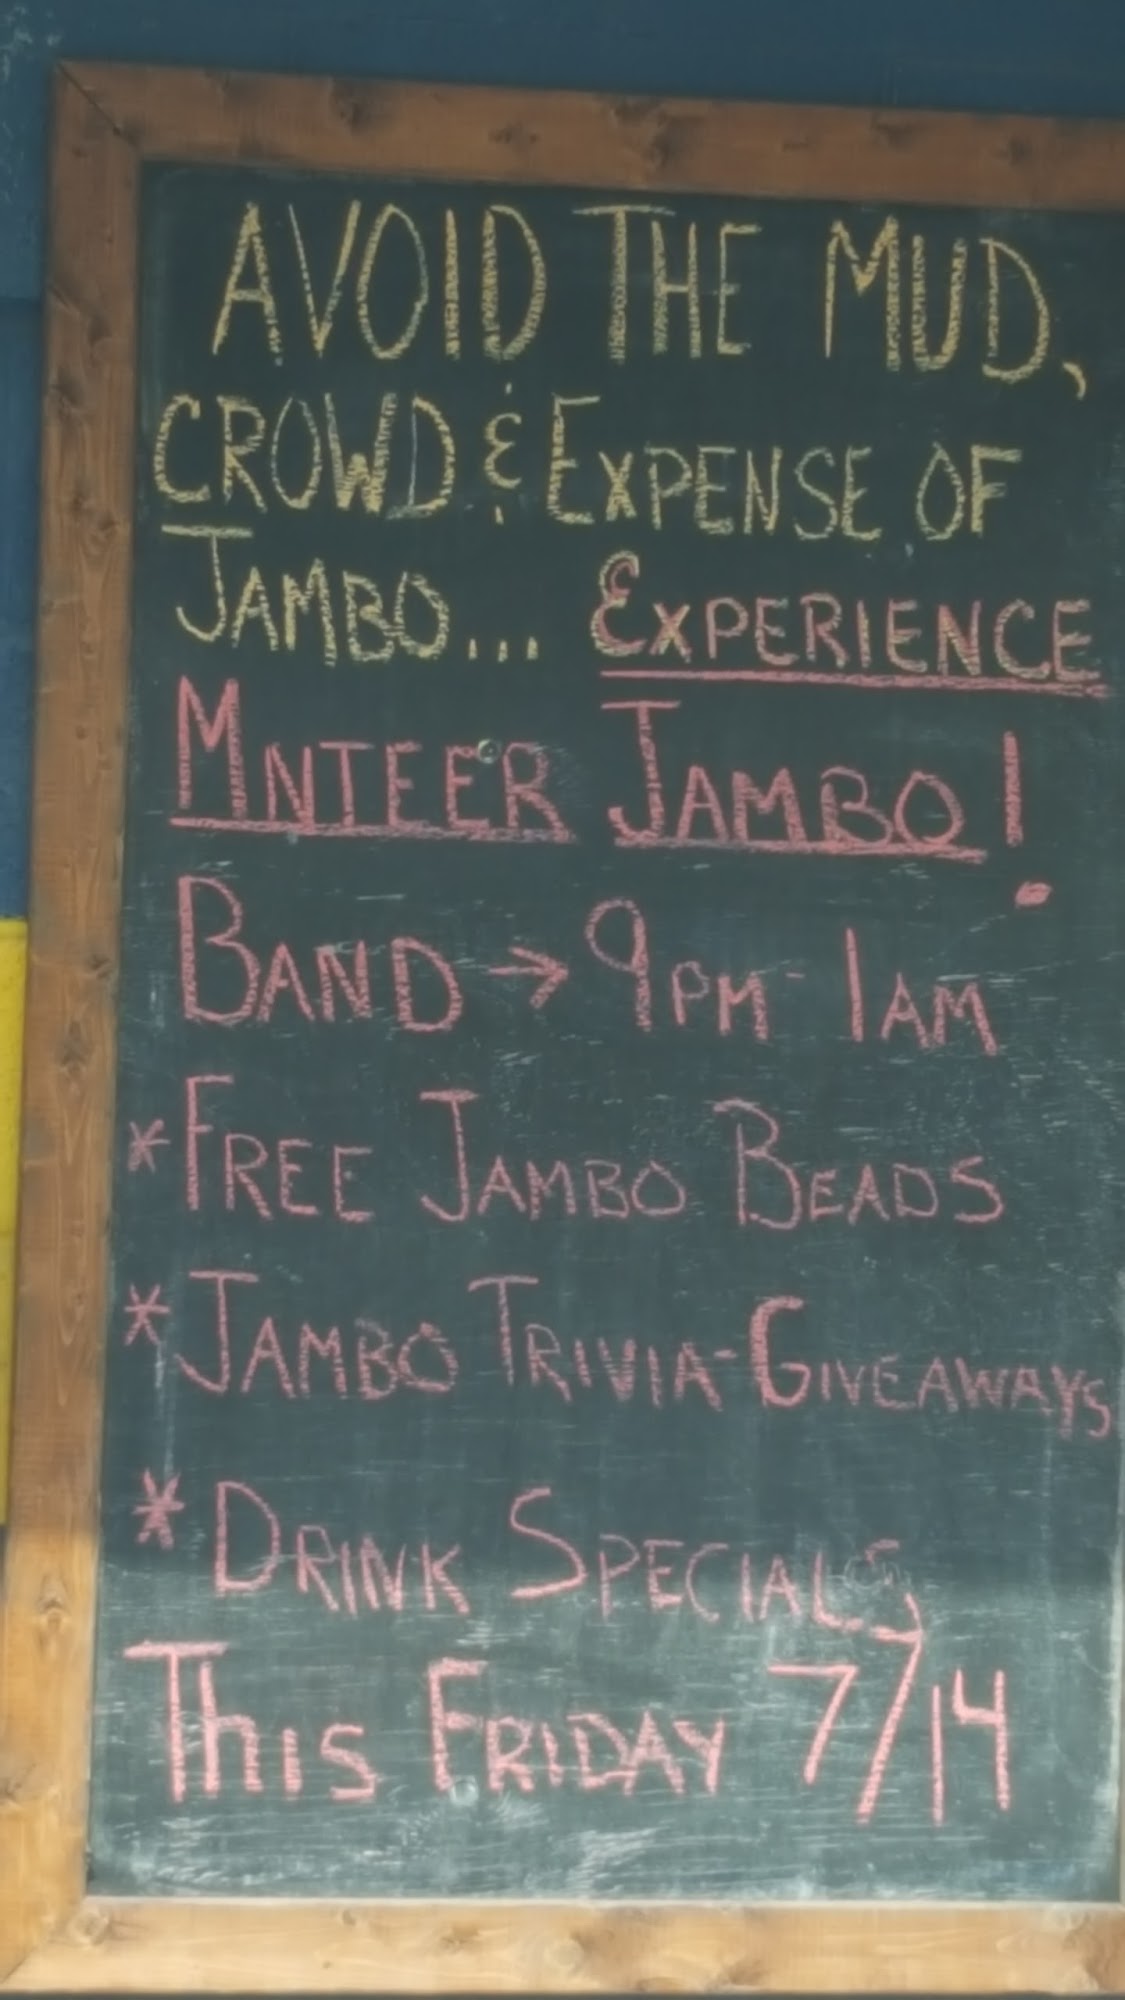 AVOID THE MUD,
CROWD & EXPENSE OF
JAMBO... EXPERIENCE
MNTEER JAMBO!
BAND → 9PM - 1AM
*FREE JAMBO BEADS
*JAMBO TRIVIA-GIVEAWAYS
*DRINK SPECIALS
THIS FRIDAY 7/14